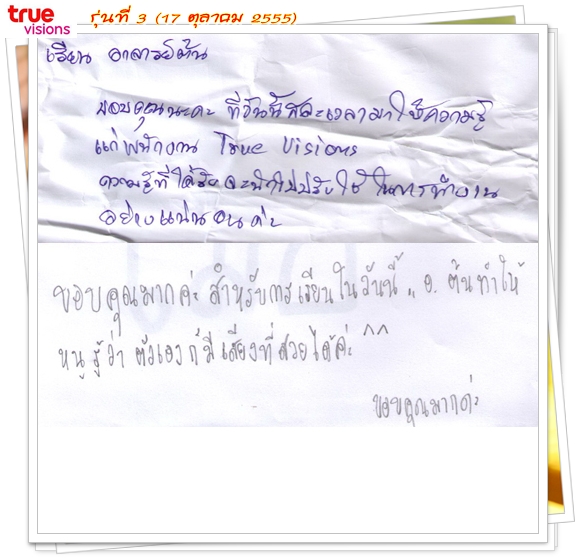 true
visions
รุ่นที่ 3 (17 ตุลาคม 2555)
เรียน อาจารย์ต้น
ขอบคุณนะคะ ที่วันนี้สละเวลามาให้ความรู้
แก่พนักงาน True Visions
ความรู้ที่ได้รับจะนำไปปรับใช้ในการทำงาน
อย่างแน่นอนค่ะ
ขอบคุณมากค่ะ สำหรับการเรียนในวันนี้ .. อ. ต้นทำให้
หนูรู้ว่า ตัวเองก็มีเสียงที่สวยได้ค่ะ ^^
ขอบคุณมากค่ะ